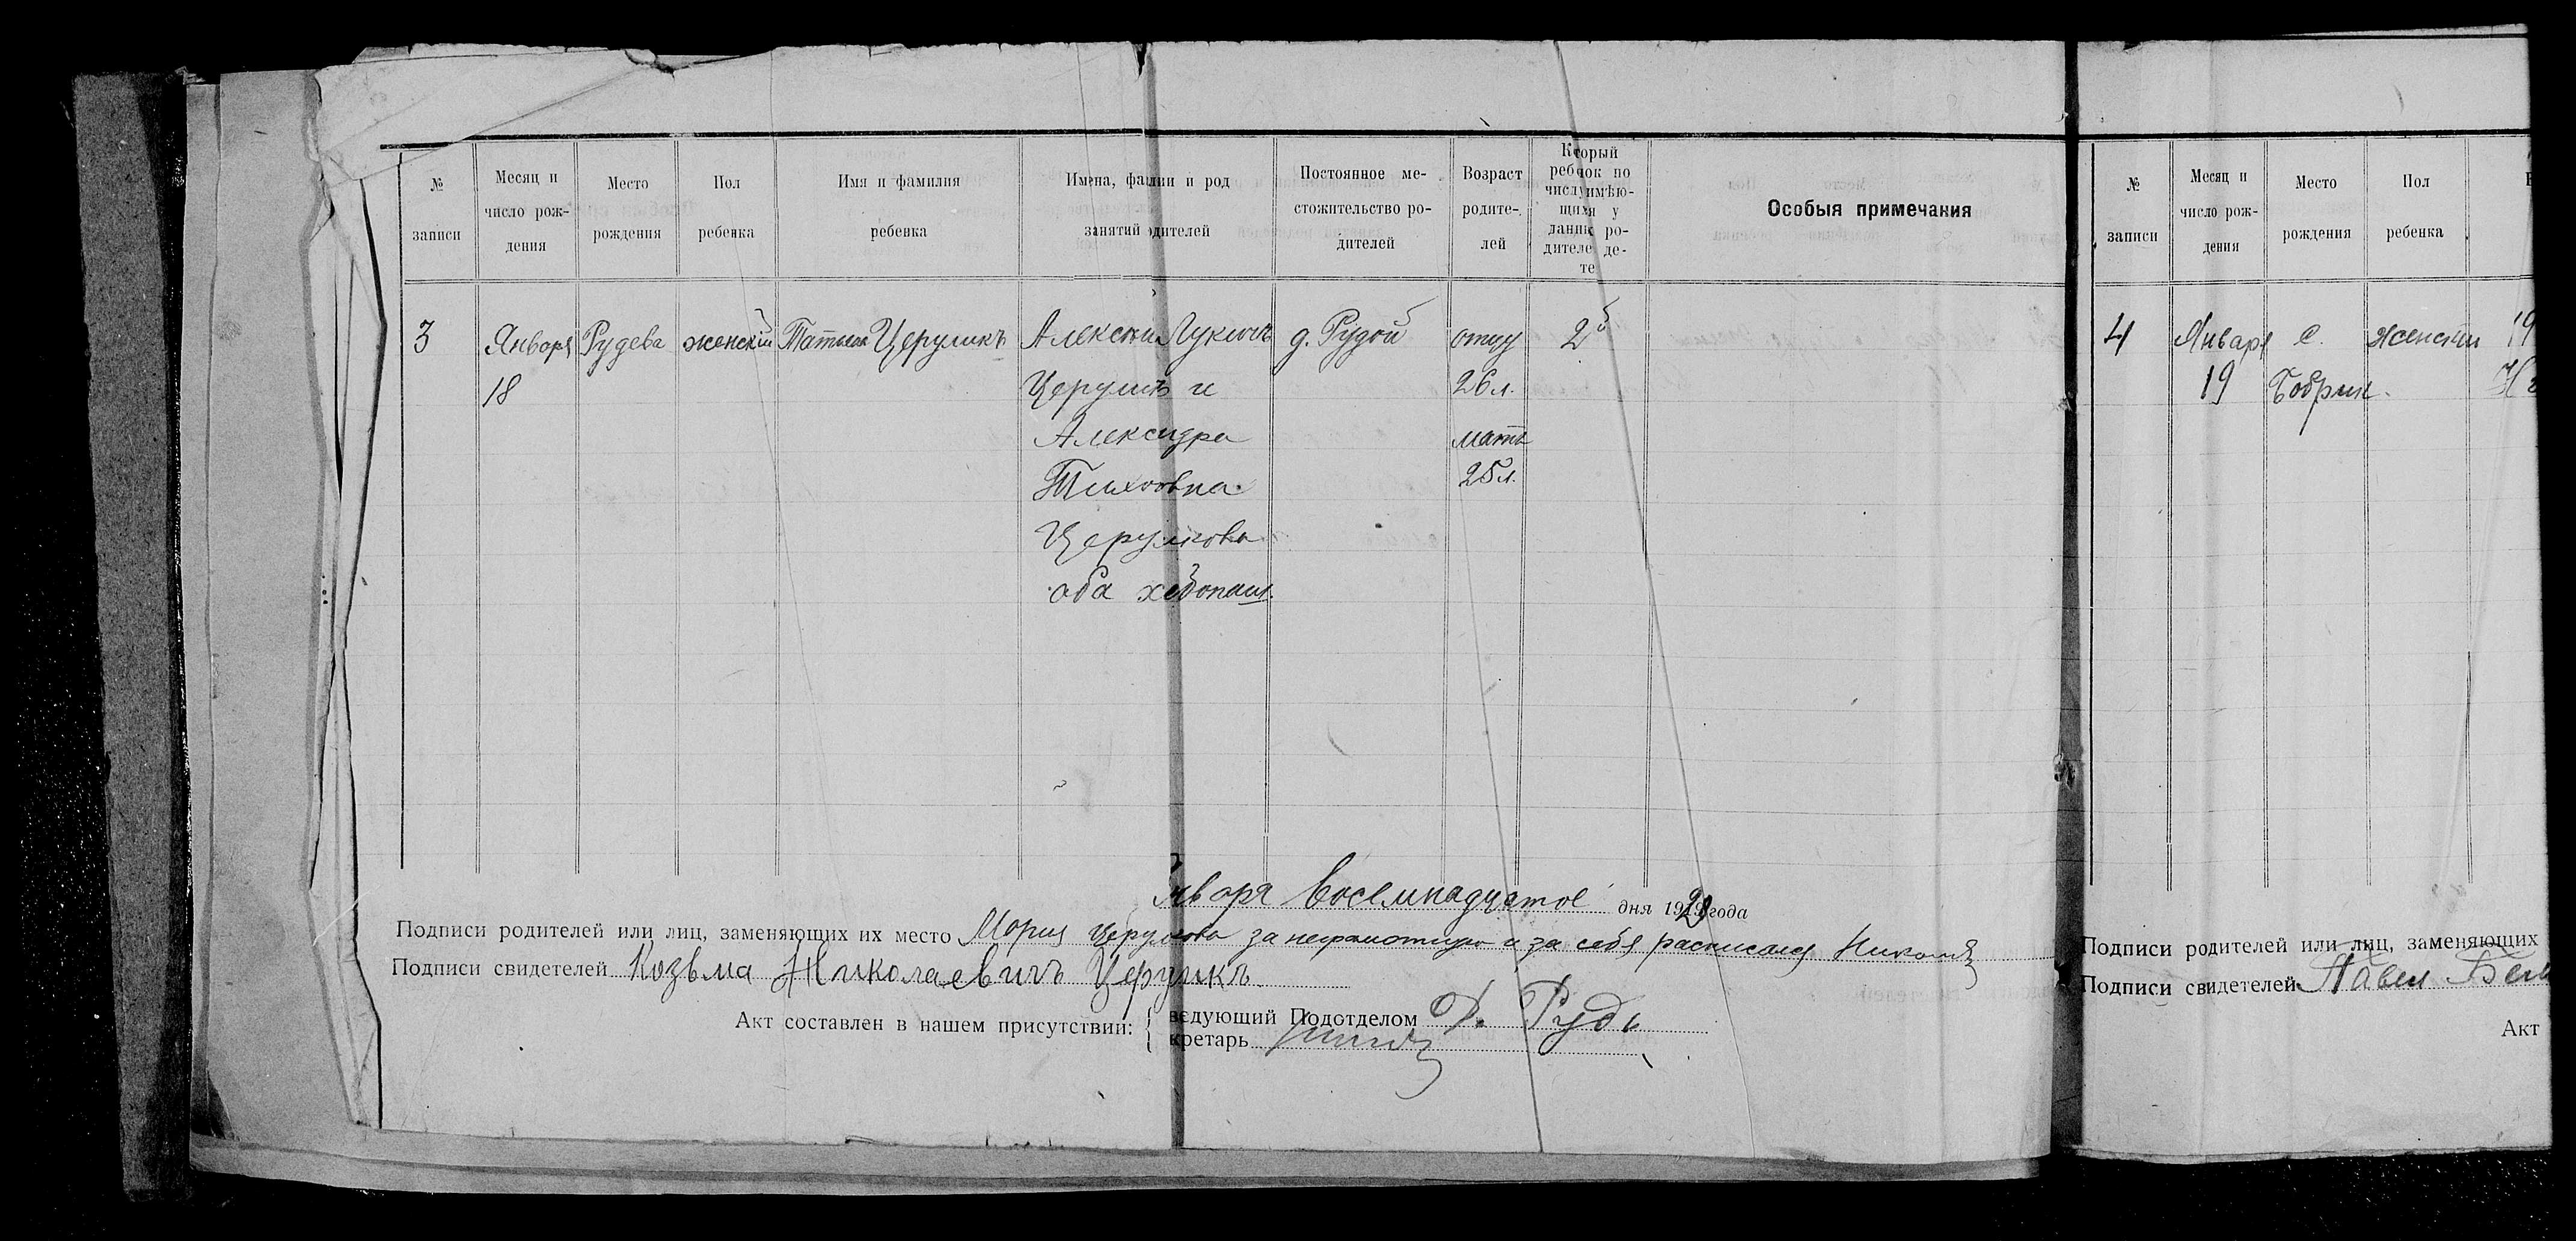 № записи
Месяц и число рождения
Место рождения
Пол ребенка
Имя и фамилия ребенка
Имена, фамлии и род занятий одителей
Постоянное местожительство родителей
Возраст родителей
Кторый ребнок по числу имѣющихя у даннк родителе дете
Особыя примечания
3
Января
18
Рудева
женскій
Татьяна Церуликъ
Алексѣй Лукичъ
Церулик и
Александра
Тихоовна
Церуликова
оба хлебопаш.
д. Рудой
отцу
26 л.
мать
25 л.
2й
Января восемнадцатое дня 1920 года
Подписи родителей или лиц, заменяющих их место Мария за неграмотную и за себя расписался Николай
Подписи свидетелей Козьма Николаевичъ Церуликъ
Акт составлен в нашем присутствии:
ведующий Подотделом Ф. Рудь
кретарь
№ записи
Месяц и число рождения
Место рождения
Пол ребенка
4
Января
19
с.
Бобрик.
женский
Подписи родителей или лиц, заменяющих
Подписи свидетелей Павел
Акт